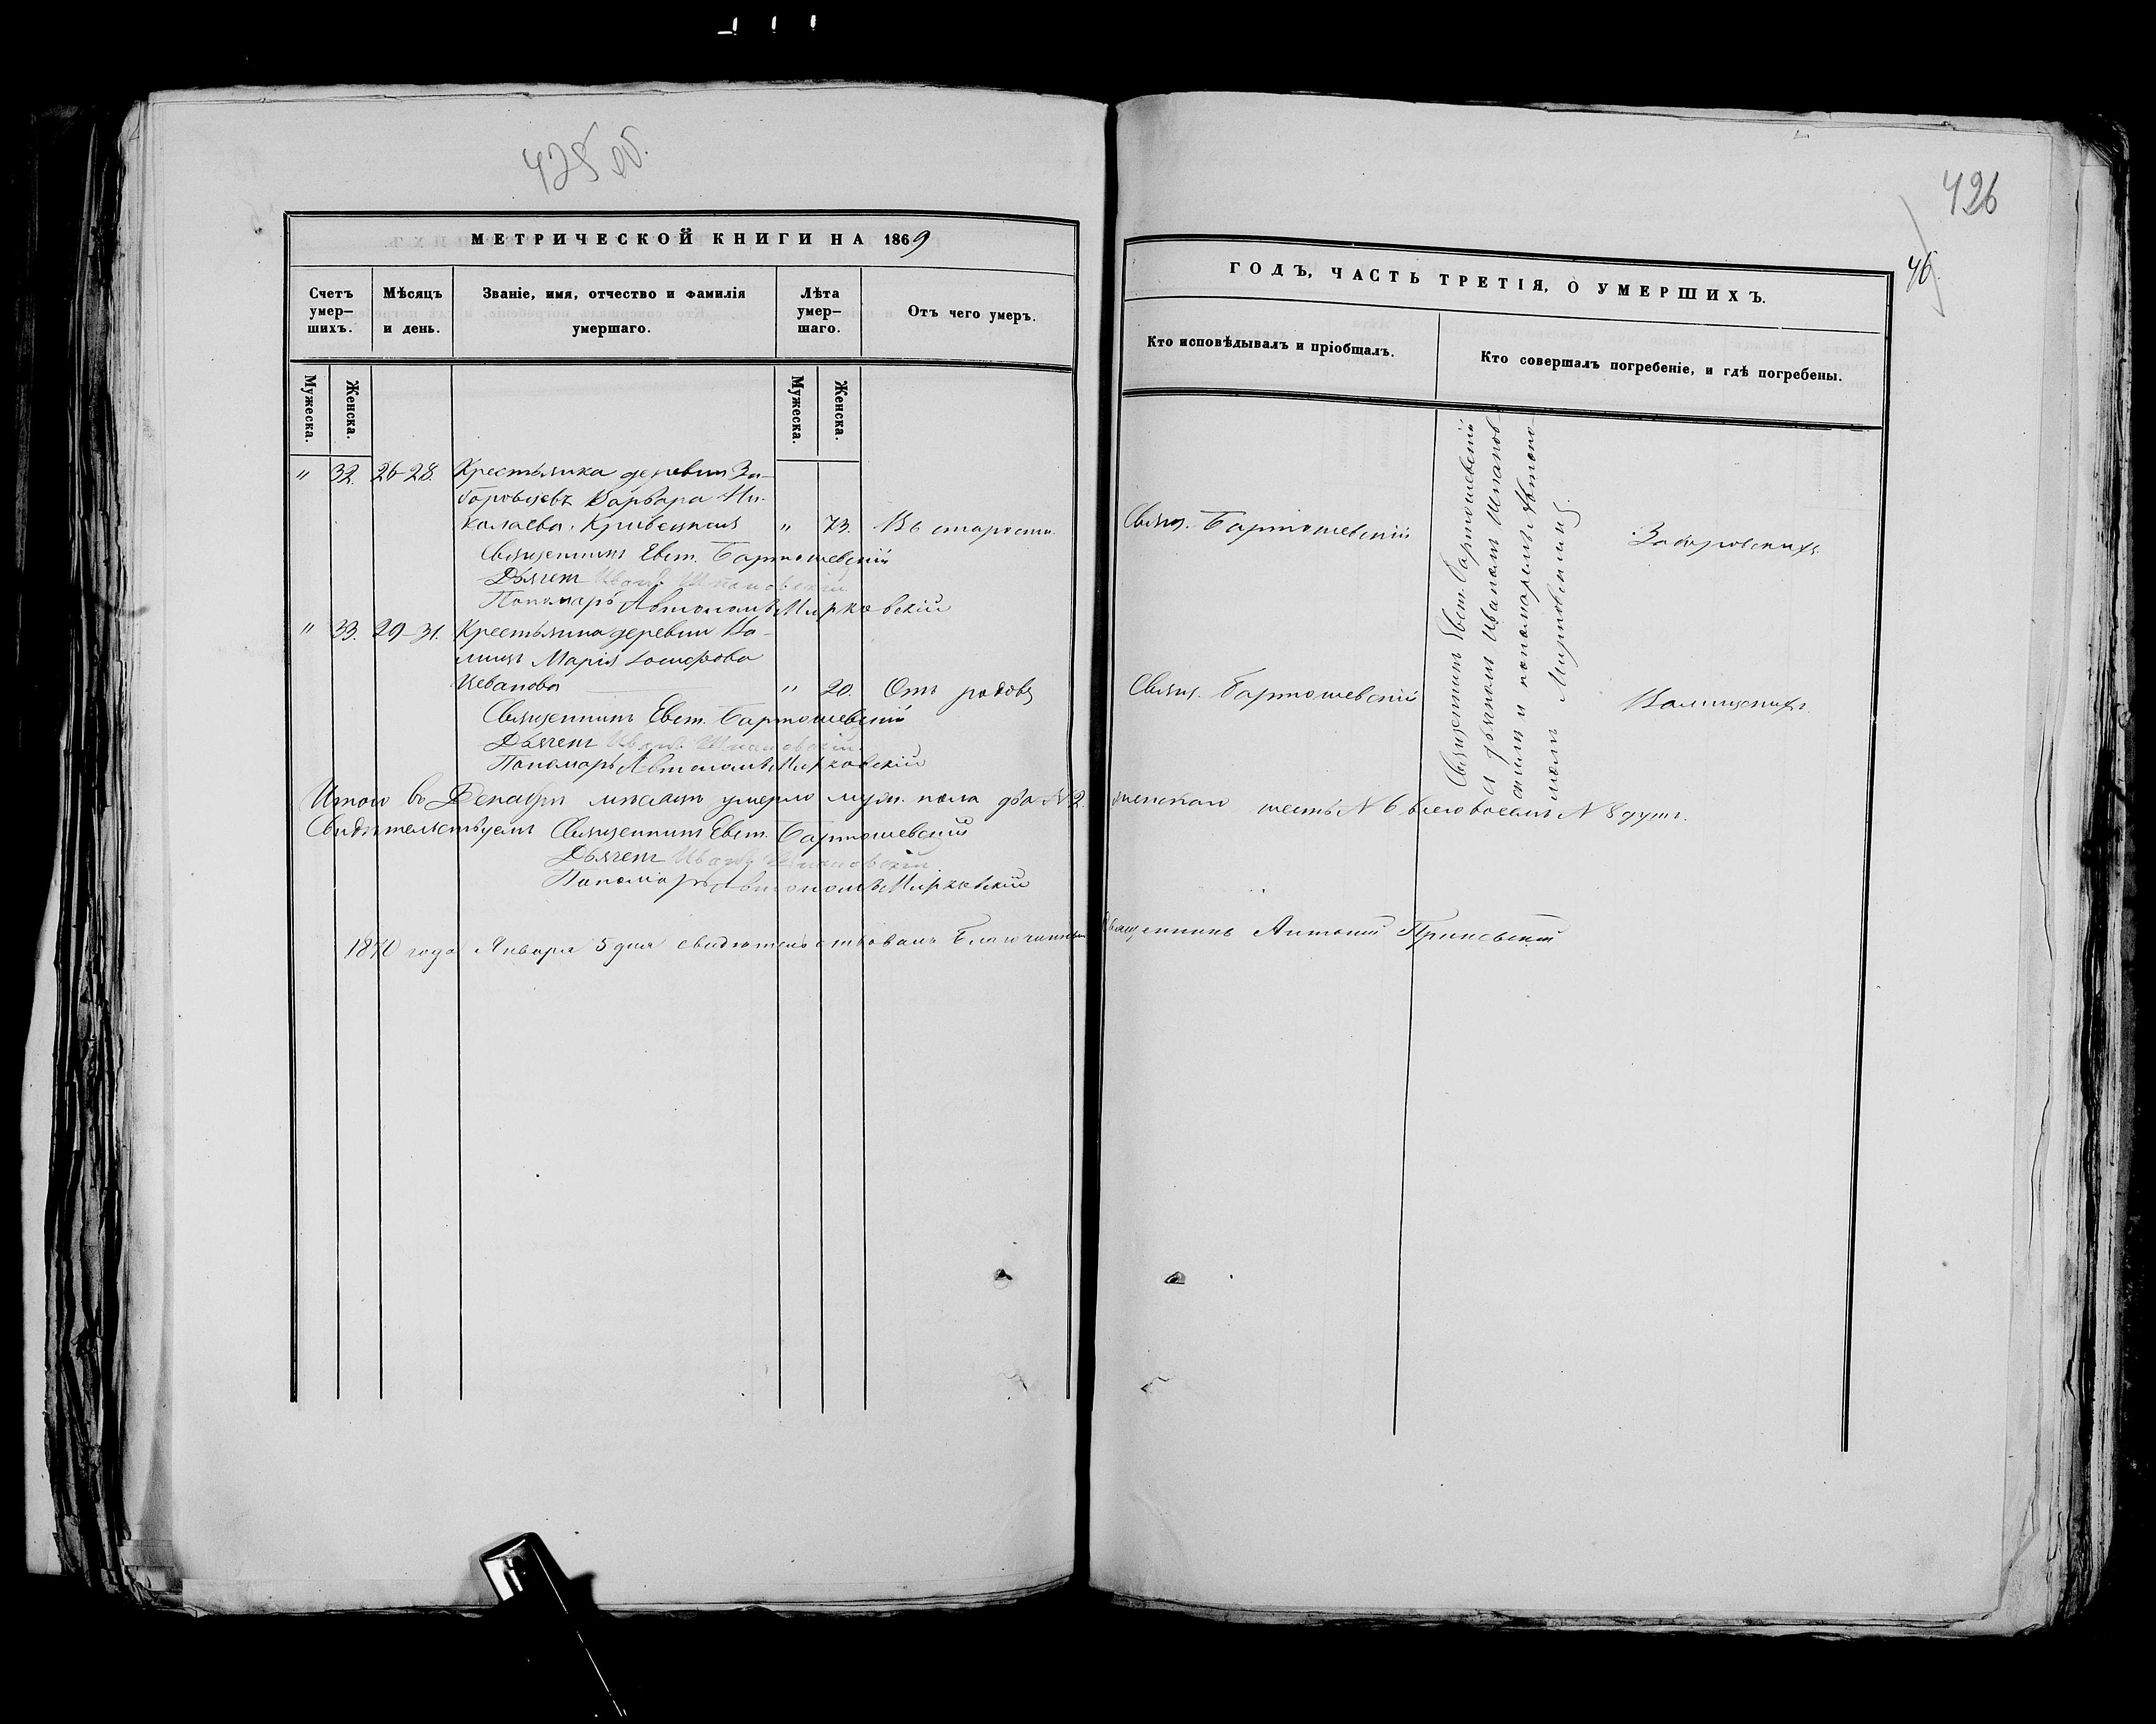 425 об.
МЕТРИЧЕСКОЙ КНИГИ НА 1869
Счетъ умер–шихъ.
Мѣсяцъ и день.
Званіе, имя, отчество и фамилія умершаго.
Лѣта умер–шаго.
Отъ чего умеръ.
Мужеска.
Женска.
Мужеска.
Женска.
" 32. 26–28. Крестьянка деревни За–
боровцевъ Варвара Ни–
колаева Кривецкая " 73. Въ старости.
Священникъ Евст. Бартошевскій
Дьячекъ Иванъ Шпановскій
Пономарь Автономъ Мирковскій
" 33. 29–31. Крестьянка деревни
Марія Іосифова
Иванова " 20. Отъ родовъ
Священникъ Евст. Бартошевскій
Дьячекъ Иванъ Шпановскій
Пономарь Автономъ Мирковскій
Итого въ Декабрѣ мѣсяцѣ умерло муж. пола два № 2.
Свидѣтельствуемъ Священникъ Евст. Бартошевскій
Дьячекъ Иванъ Шпановскій
Пономарь Автономъ Мирковскій
1870 года Января 5 дня свидѣтельствовалъ Благочинный
426
46
ГОДЪ, ЧАСТЬ ТРЕТІЯ, О УМЕРШИХЪ.
Кто исповѣдывалъ и пріобщалъ.
Кто совершалъ погребеніе, и гдѣ погребены.
Свящ. Бартошевскій
Священникъ Евст. Бартошевскій
съ дьячкомъ Иваномъ Шпанов–
скимъ и пономаремъ Автоно–
момъ Мирковскимъ
Заборовскихъ.
Свящ. Бартошевскій
женскаго шесть № 6 всего восемь № 8 душъ.
Священникъ Антоній